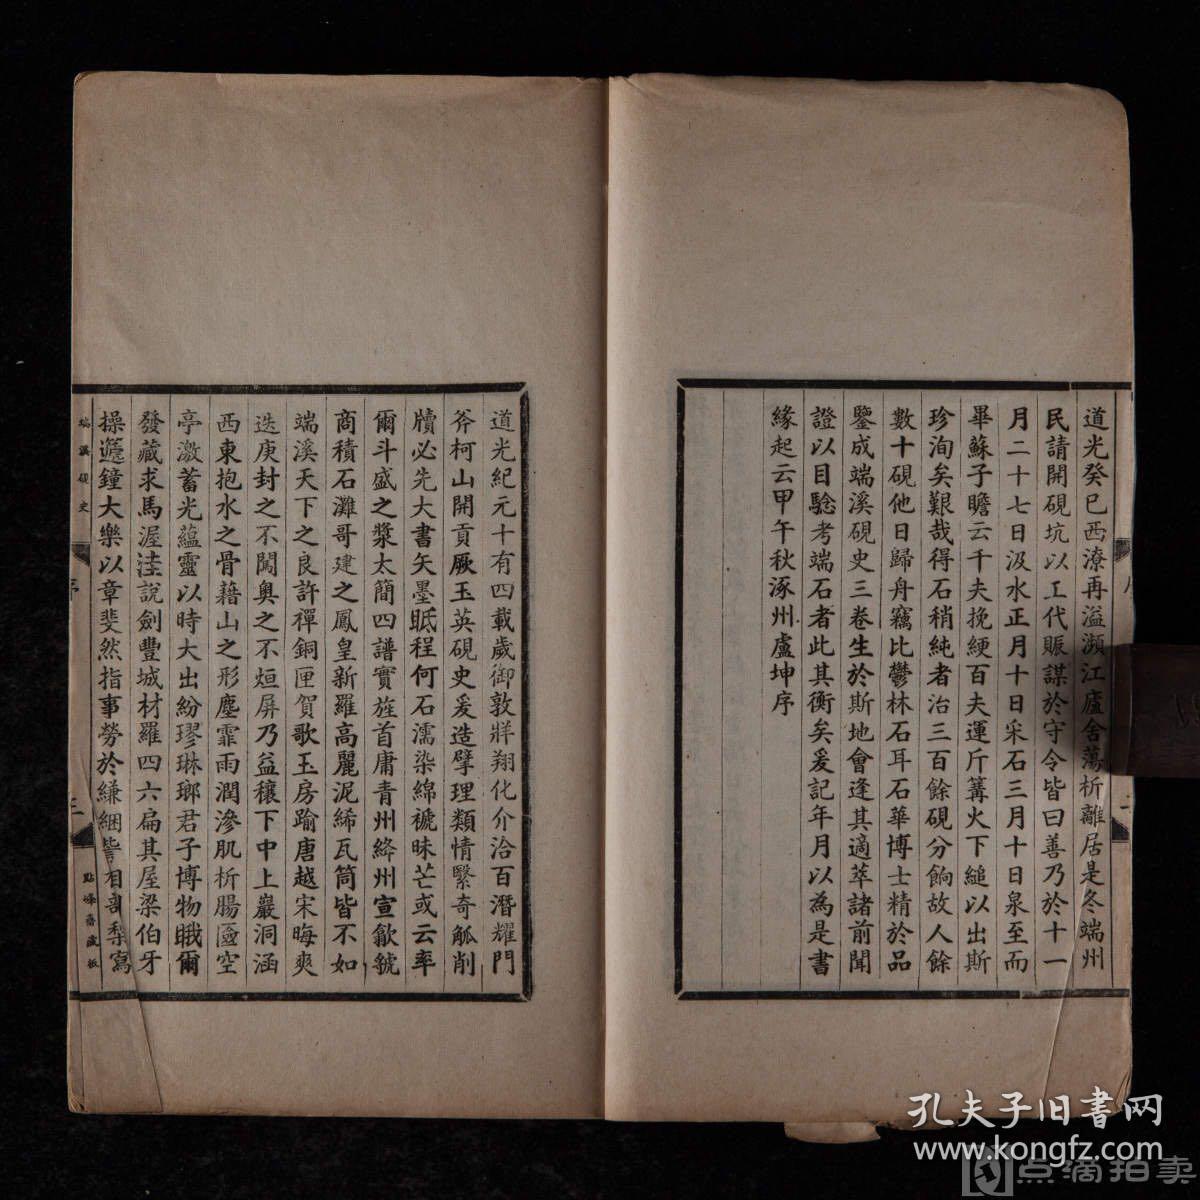 道光癸巳西潦再溢瀕江廬舍蕩析離居是冬端州
民請開硯坑以工代賑謀於守令皆曰善乃於十一
月二十七日汲水正月十日采石三月十日泉至而
畢蘇子瞻云千夫挽綆百夫運斤篝火下縋以出斯
珍洵矣艱哉得石稍純者治三百餘硯分餉故人餘
數十硯他日歸舟竊比鬱林石耳石華博士精於品
鑒成端溪硯史三卷生於斯地會逢其適萃諸前聞
證以目驗考端石者此其衡矣爰記年月以為是書
緣起云甲午秋涿州盧坤序
道光紀元十有四載歲御敦牂翔化介洽百潛耀門
斧柯山開貢厥玉英硯史爰造擘理類情緊奇觚削
牘必先大書矢墨眡程何石濡染綿褫昧芒或云率
爾斗盛之漿太簡四譜實旌首庸青州絳州宣歙虢
商積石灘哥建之鳳皇新羅高麗泥絺瓦筒皆不如
端溪天下之良許禪銅匣賀歌玉房踰唐越宋晦爽
迭庚封之不闖奥之不烜屏乃益穰下中上巖洞涵
西東抱水之骨藉山之形塵霏雨潤滲肌析腸區空
亭激蓄光蘊靈以時大出紛璆琳瑯君子博物睋爾
發藏求馬渥洼說劍豐城材羅四六扁其屋梁伯牙
操遞鐘大樂以章斐然指事勞於縑緗訾相 梨寫
端溪硯史
序
三
點峰齋藏板
孔夫子旧書网
www.kongfz.com
点滴拍卖